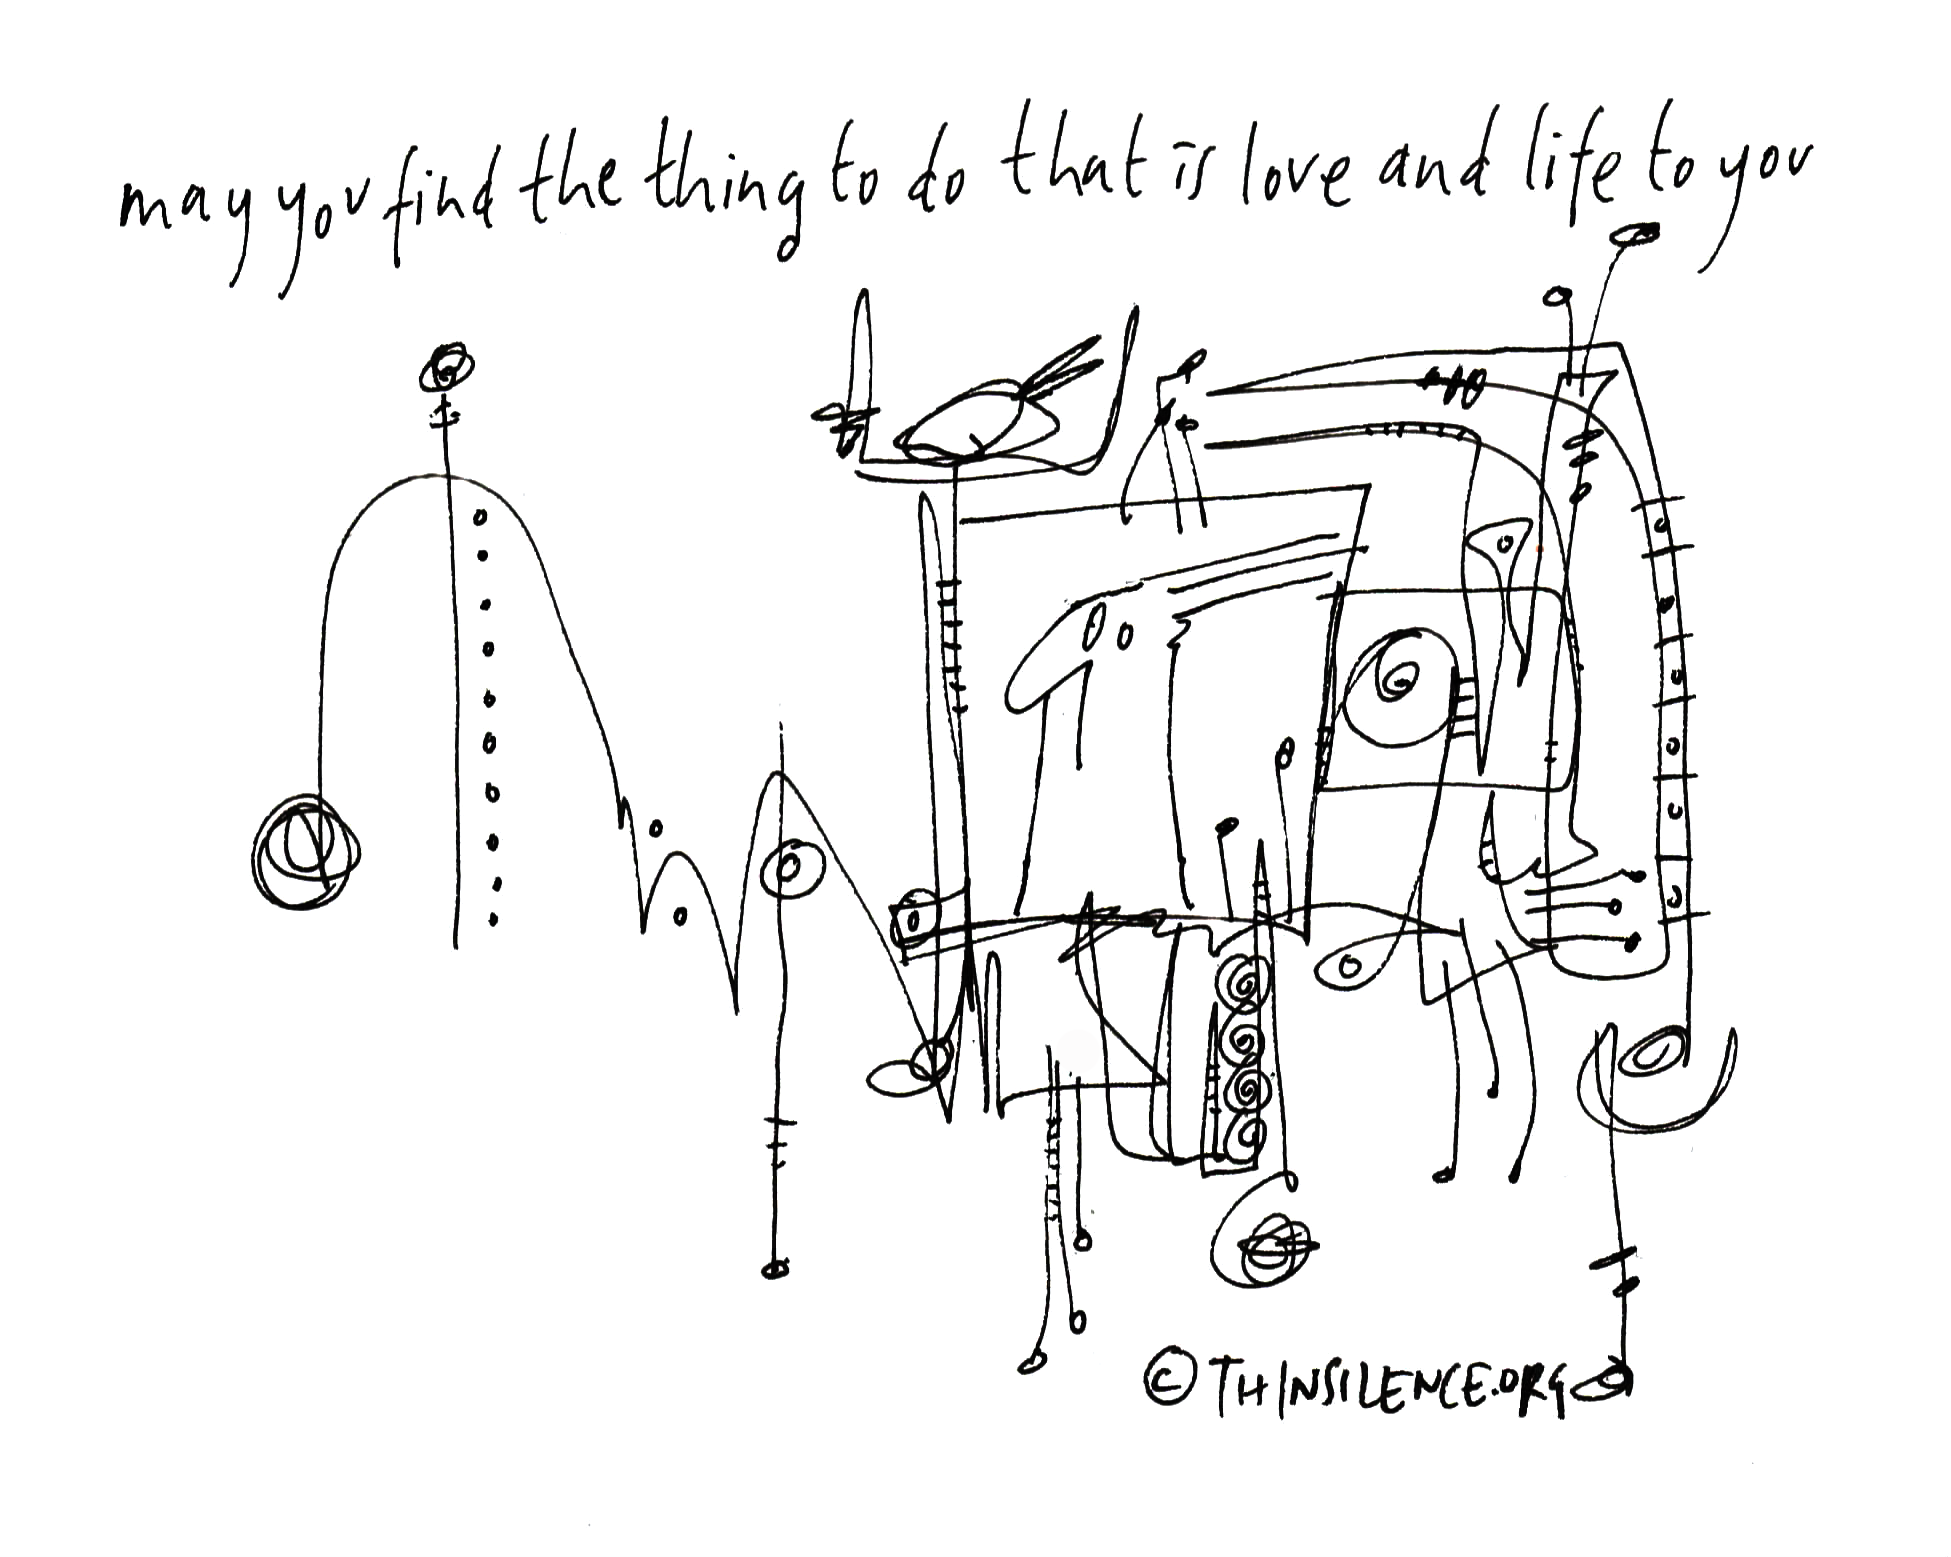 may you find the thing to do that is love and life to you
© THINSILENCE.ORG